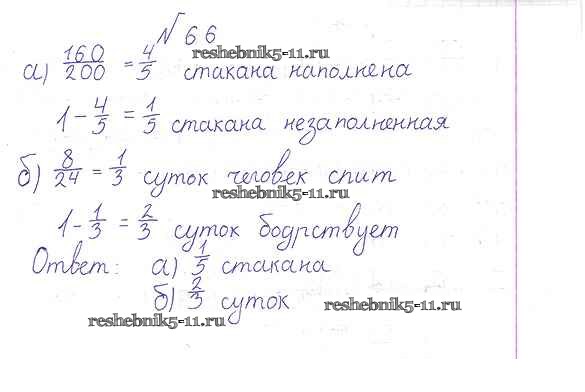 № 66
reshebnik5-11.ru
а) 160/200 = 4/5 стакана наполнена
1 - 4/5 = 1/5 стакана незаполненная
б) 8/24 = 1/3 суток человек спит
reshebnik5-11.ru
1 - 1/3 = 2/3 суток бодрствует
Ответ: а) 1/5 стакана
б) 2/3 суток
reshebnik5-11.ru
reshebnik5-11.ru